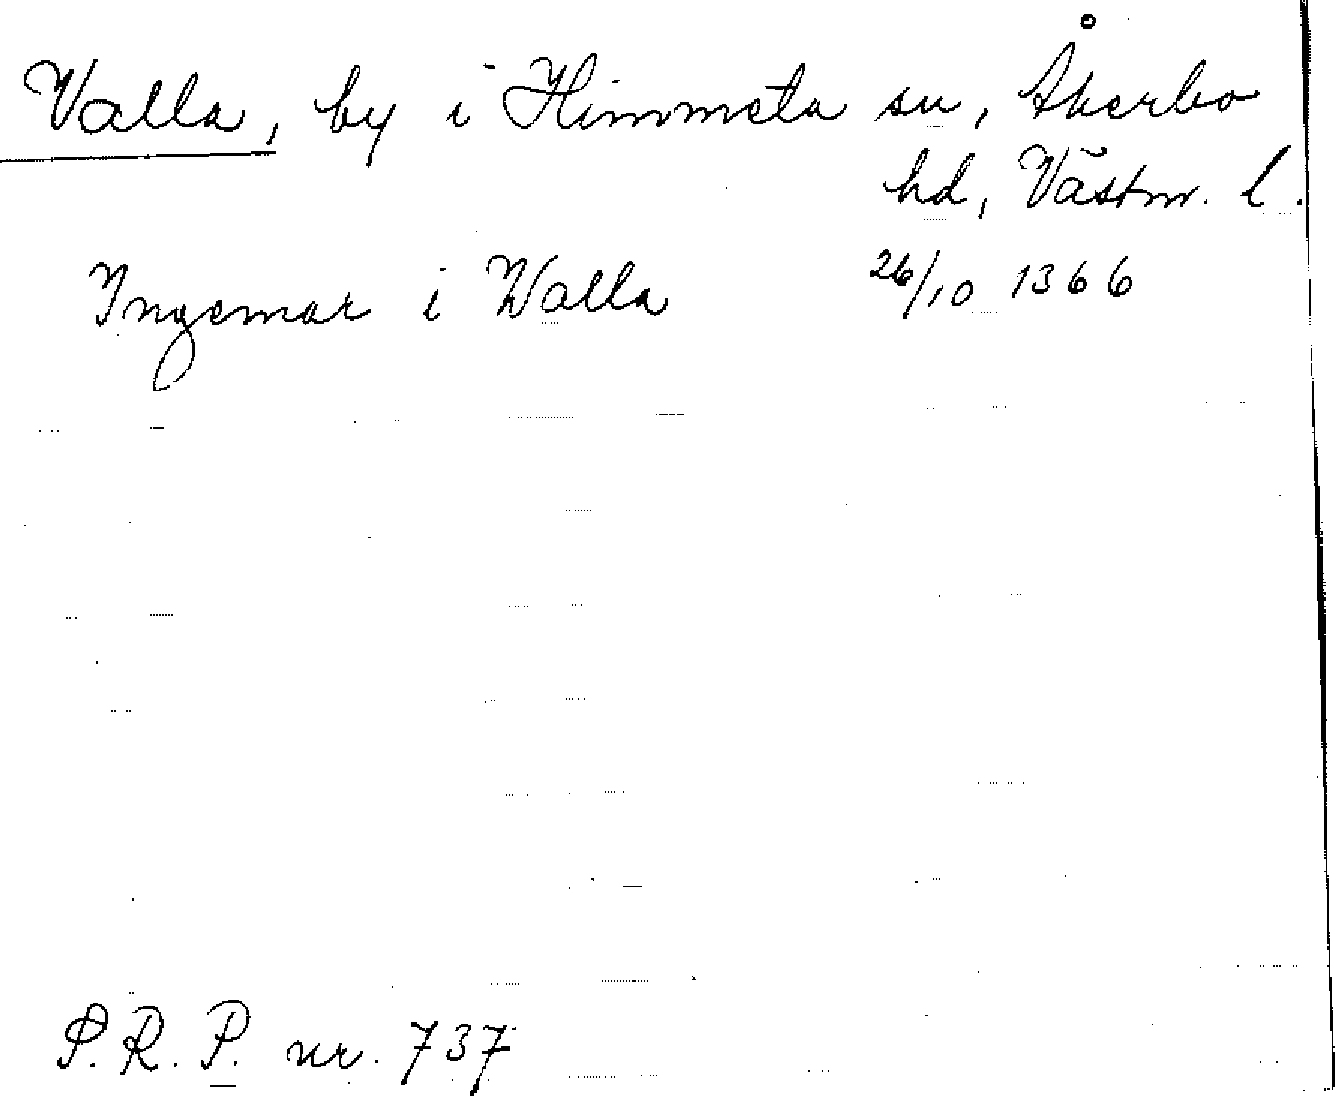 Valla, by i Himmeta sn, Åkerbo
hd, Västm. l.
Ingemar i Walla 26/10 1366
P.R.P. nr. 737